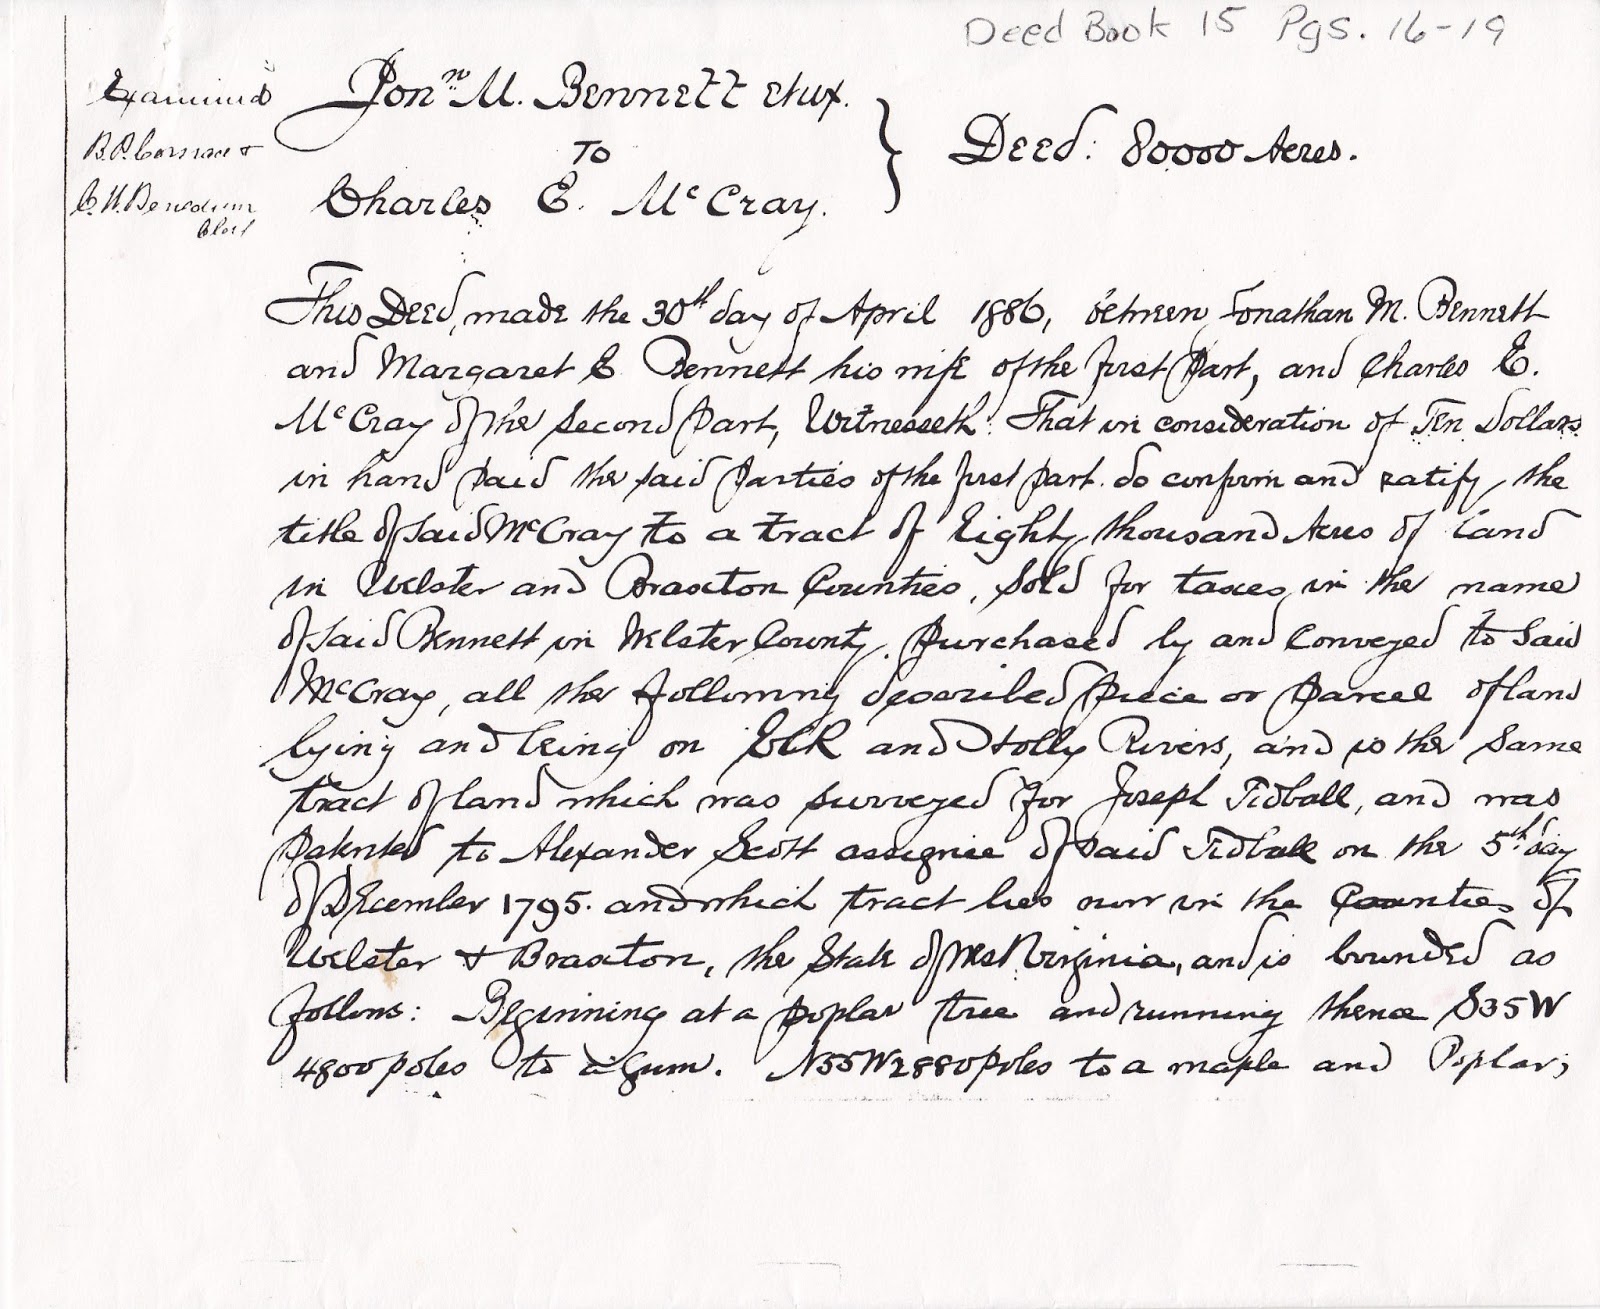 Deed Book 15 Pgs. 16-19
Examined
B.P.
&
C.H. Benedum
Clerk
Jonⁿ M. Bennett et ux.
To
Charles E. McCray.
} Deed: 80000 Acres.
This Deed, made the 30th day of April 1886, between Jonathan M. Bennett
and Margaret E Bennett his wife of the first Part, and Charles E.
McCray of the second Part, Witnesseth: That in consideration of Ten Dollars
in hand paid the said Parties of the first part. do confirm and ratify, the
title of said McCray to a tract of Eighty thousand Acres of Land
in Webster and Braxton Counties, Sold for taxes, in the name
of said Bennett in Webster County. Purchased by and Conveyed to said
McCray, all the following described Piece or Parcel of land
lying and being on Elk and Holly Rivers, and is the same
tract of land which was surveyed for Joseph Tidball, and was
Patented to Alexander Scott assignee of said Tidball on the 5th day
of December 1795. and which tract lies now in the Counties of
Webster & Braxton, the State of West Virginia, and is bounded as
follows: Beginning at a poplar tree and running thence S35W
4800 poles to a gum. N55W2880 poles to a maple and Poplar;